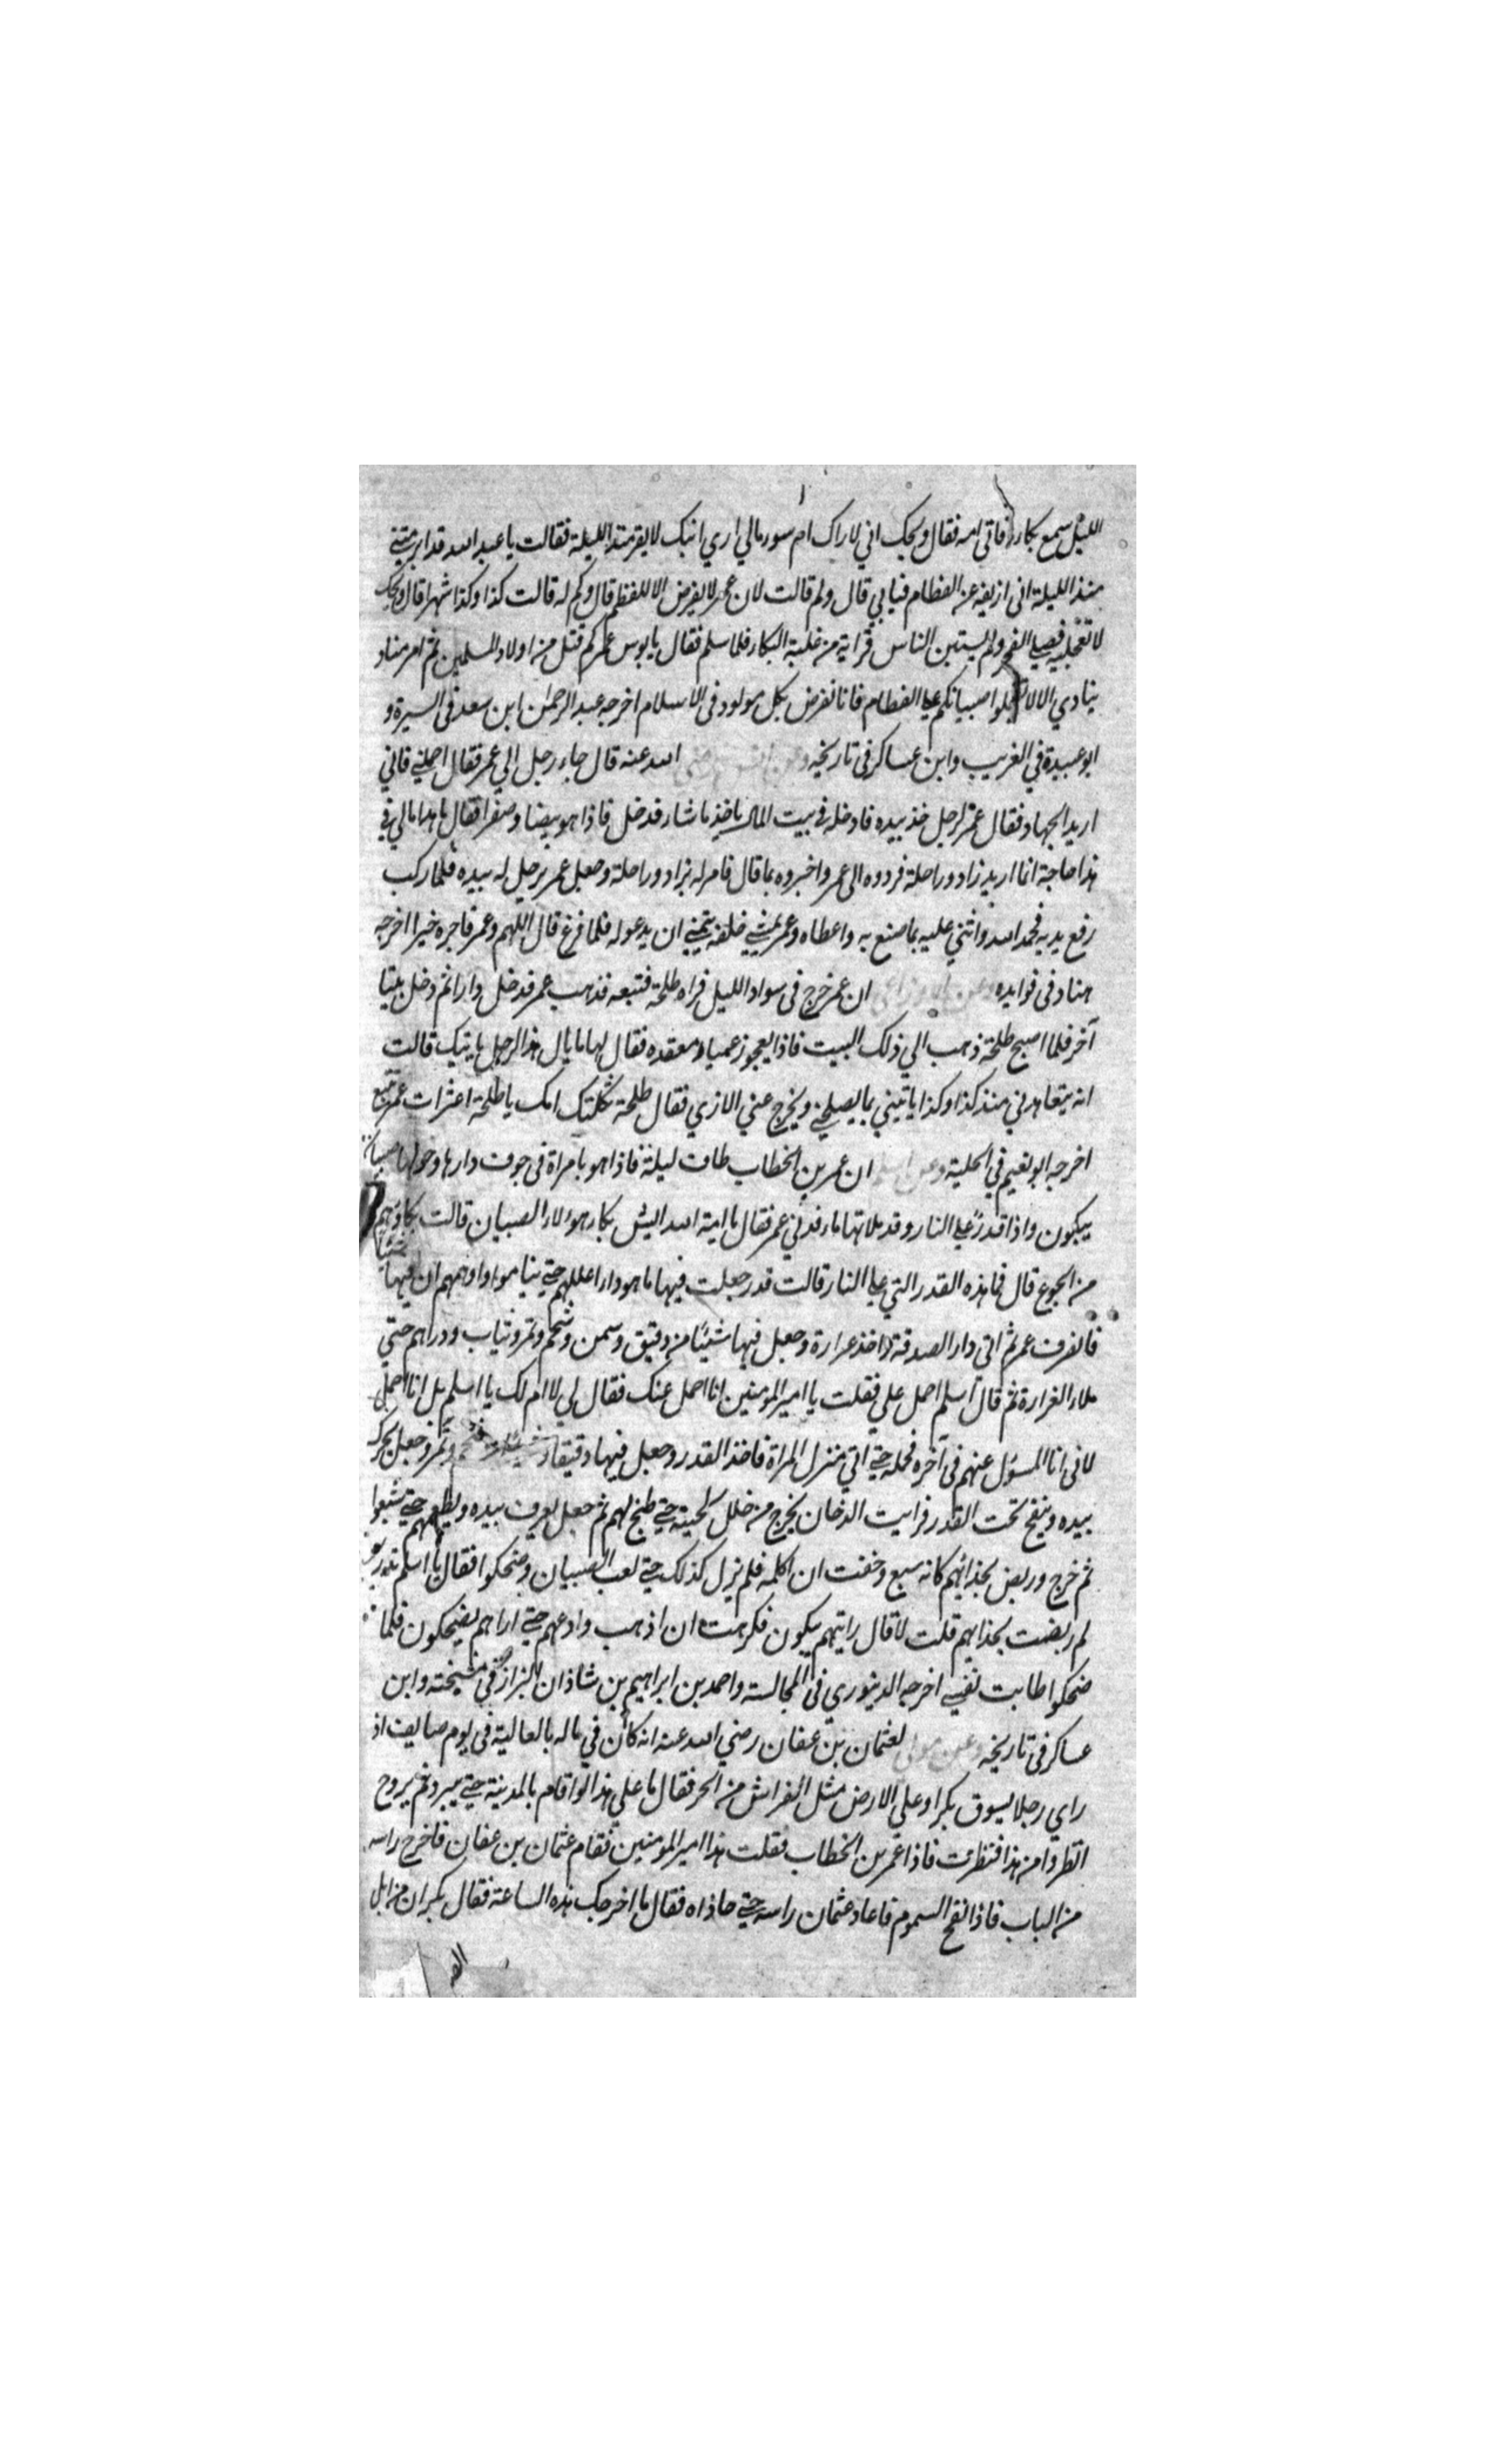 الليل سمع بكاءه فاتى امه فقال ويحك اني لاراك ام سوء مالي اري ابنك لا يقر منذ الليلة فقالت يا عبد الله قد ابرمتني
منذ الليلة اني ازيغه عن الفطام فيابي قال ولم قالت لان عمر لا يفرض الا للفطم قال وكم له قالت كذا وكذا شهرا قال ويحك
لا تعجليه فصلي الفجر ولم يستبن الناس قراية من غلبة البكاء فلما سلم فقال يا بوس عمر كم قتل من اولاد المسلمين ثم امر مناد
ينادي الا لا تعجلوا صبيانكم علي الفطام فانا نفرض بكل مولود في الاسلام اخرجه عبد الرحمن ابن سعد في السيرة و
ابو عبيدة في الغريب وابن عساكر في تاريخه وعن الله عنه قال جاء رجل الي عمر فقال احملني فاني
اريد الجهاد فقال عمر لرجل خذ بيده فادخله في بيت المال ياخذ ما شاء فدخل فاذا هو بيضا وصفرا فقال ما هذا مالي في
هذا حاجة انما اريد زاد وراحلة فردوه الى عمر واخبروه بما قال فامر له بزاد وراحلة وجعل عمر يرحل له بيده فلما ركب
رفع يديه فحمد الله واثني عليه بما صنع به واعطاه وعمر يمشي خلفه يتمني ان يدعو له فلما فرغ قال اللهم وعمر فاجزه خيرا اخرجه
هناد في فوايده وعن الاوزاعي ان عمر خرج في سواد الليل فراه طلحة فتبعه فذهب عمر فدخل دارا ثم دخل بيتا
آخر فلما اصبح طلحة ذهب الي ذلك البيت فاذا بعجوز عمياء مقعده فقال لها ما بال هذا الرجل ياتيك قالت
انه يتعاهدني منذ كذا وكذا ياتيني بما يصلحني ويخرج عني الاذي فقال طلحة ثكلتك امك يا طلحة اعثرات عمر تتبع
اخرجه ابو نعيم في الحلية وعن اسلم ان عمر بن الخطاب طاف ليلة فاذا هو بامراة في جوف دارها وحولها صبيان
يبكون واذا قدر علي النار قد ملاتها ماء فدني عمر فقال يا امة الله اليش بكاء هولاء الصبيان قالت بكاؤهم
من الجوع قال فما هذه القدر التي علي النار قالت قدر جعلت فيها ما هو داء اعللهم حتي يناموا واوهمهم ان فيها شيئا
فانصرف عمر ثم اتي دار الصدقة واخذ غرارة وجعل فيها شيئا من دقيق وسمن وشحم وتمر وثياب ودراهم حتي
ملاء الغرارة ثم قال اسلم احمل علي فقلت يا امير المومنين انا احمل عنك فقال لي لا ام لك يا اسلم بل انا احمل
لاني انا المسؤل عنهم في آخره فحمله حتي اتي منزل المراة فاخذ القدر وجعل فيها دقيقا وتمر وجعل يحرك
بيده وينفخ تحت القدر فرايت الدخان يخرج من خلل لحيته حتي طبخ لهم ثم جعل يغرف بيده ويطعمهم حتي شبعوا
ثم خرج وربض بحذائهم كانه سبع وخفت ان اكلمه فلم يزل كذلك حتي لعب الصبيان وضحكوا فقال يا اسلم تدري
لم ربضت بحذايهم قلت لا قال رايتهم يبكون فكرهت ان اذهب وادعهم حتي اراهم يضحكون فلما
ضحكوا طابت نفسي اخرجه الدينوري في المجالسة واحمد بن ابراهيم بن شاذان البزاز في مشيخته وابن
عساكر في تاريخه وعن مولى لعثمان بن عفان رضي الله عنه انه كان في ماله بالعالية في يوم صايف اذ
راي رجلا يسوق بكرا وعلي الارض مثل الفراش من الحر فقال ما علي هذا لو اقام بالمدينة حتي يبرد ثم يروح
انظروا من هذا فنظرت فاذا عمر بن الخطاب فقلت هذا امير المومنين فقام عثمان بن عفان فاخرج راسه
من الباب فاذا نفح السموم فاعاد عثمان راسه حتي حاذاه فقال ما اخرجك هذه الساعة فقال بكران من ابل